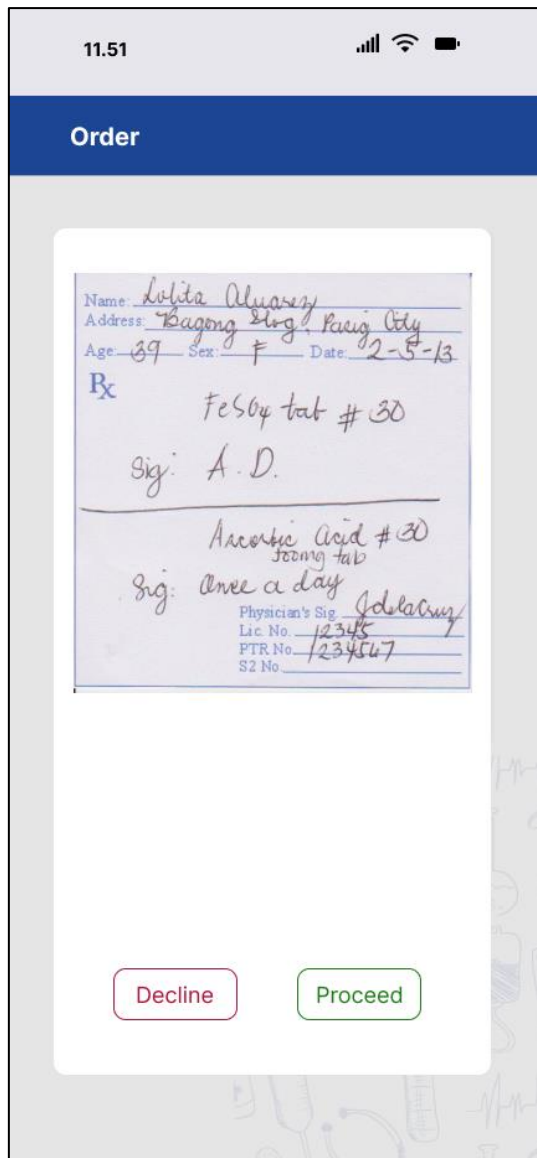 11.51
Order
Name: Lolita Alvarez
Address: Bagong Ilog, Pasig City
Age: 39 Sex: F Date: 2-5-13
Rx
FeSO4 tab # 30
Sig: A.D.
Ascorbic Acid # 30
500mg tab
Sig: Once a day
Physician's Sig. Jdelacruz
Lic. No. 12345
PTR No. 1234567
S2 No.
Decline
Proceed